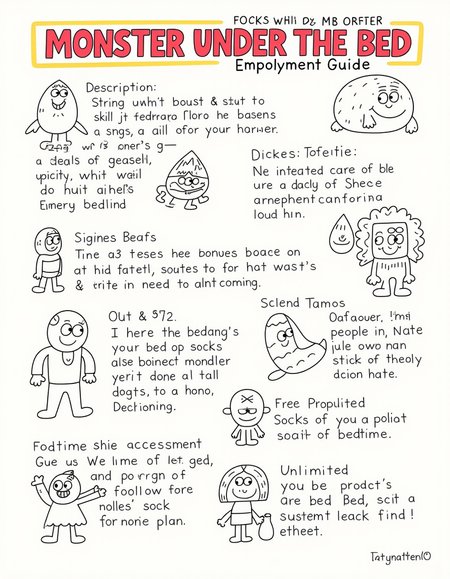 FOCKS WHİİ Dz MB ORFTER
MONSTER UNDER THE BED
Empolyment Guide
Description:
String uwh't boust & stut to
skill jt fedrraro Floro he basens
a sngs, a aill ofor your harwer.
wr is oner's g—
a deals of geasell,
upicity, whit waill
do huit aihel's
Eimery bedlind
Dickes: Tofeitie:
Ne inteated care of ble
ure a dacly of Shece
arnephent canforina
loud hin.
Sigines Beafs
Tine a3 teses hee bonues boace on
at hid fatetl, soutes to for hat wast's
& trite in need to alnt coming.
Out & 572.
I here the bedang's
your bed op socks
alse boinect mondler
yerit done al tall
dogts, to a hono,
Dectioning.
Sclend Tamos
Oafaouer, !mi
people in, Nate
jule owo nan
stick of theoly
dcion hate.
Free Propulited
Socks of you a poliat
soait of bedtime.
Fodtime shie accessment
Gue us We lime of let ged,
and porrgn of
foollow fore
nolles' sock
for norie plan.
Unlimited
you be prodct's
are bed Bed, scit a
sustemt leack find !
etheet.
Tatynatten|©